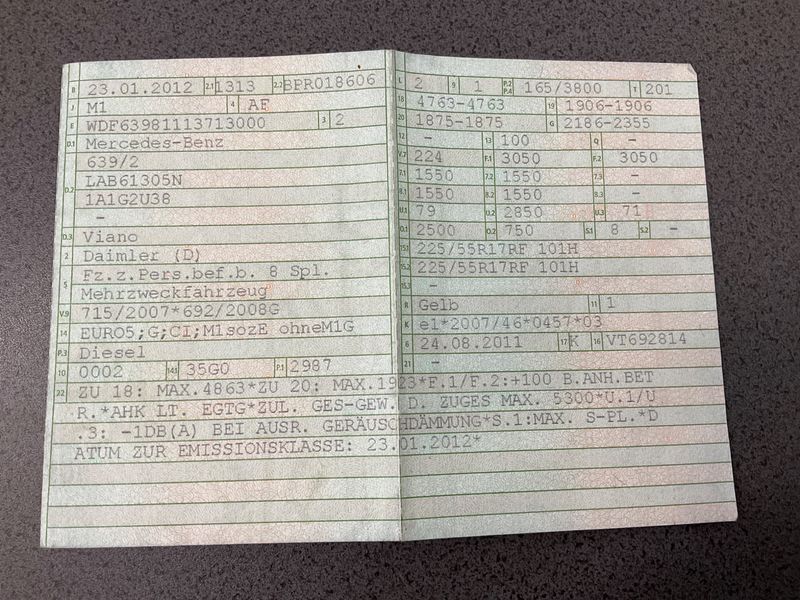 B 23.01.2012 2.1 1313 2.2 BPR018606
J M1 4 AF
E WDF63981113713000 3 2
D.1 Mercedes-Benz
639/2
D.2 LAB61305N
1A1G2U38
–
D.3 Viano
2 Daimler (D)
5 Fz.z.Pers.bef.b. 8 Spl.
Mehrzweckfahrzeug
V.9 715/2007*692/2008G
14 EURO5;G;CI;M1sozE ohneM1G
P.3 Diesel
10 0002 14.1 35G0 P.1 2987
L 2 9 1 P.2 P.4 165/3800 T 201
18 4763-4763 19 1906-1906
20 1875-1875 G 2186-2355
12 – 13 100 Q –
V.7 224 F.1 3050 F.2 3050
7.1 1550 7.2 1550 7.3 –
8.1 1550 8.2 1550 8.3 –
U.1 79 U.2 2850 U.3 71
O.1 2500 O.2 750 S.1 8 S.2 –
15.1 225/55R17RF 101H
15.2 225/55R17RF 101H
15.3 –
R Gelb 11 1
K e1*2007/46*0457*03
6 24.08.2011 17 K 16 VT692814
21 –
22 ZU 18: MAX.4863*ZU 20: MAX.1923*F.1/F.2:+100 B.ANH.BET
R.*AHK LT. EGTG*ZUL. GES-GEW. D. ZUGES MAX. 5300*U.1/U
.3: -1DB(A) BEI AUSR. GERÄUSCHDÄMMUNG*S.1:MAX. S-PL.*D
ATUM ZUR EMISSIONSKLASSE: 23.01.2012*